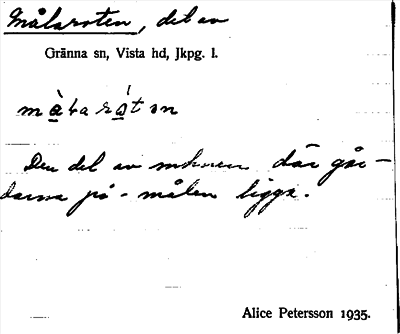 Målaroten, del av
Gränna sn, Vista hd, Jkpg. l.
Den del av där går-
darna på - målen ligga.
Alice Petersson 1935.